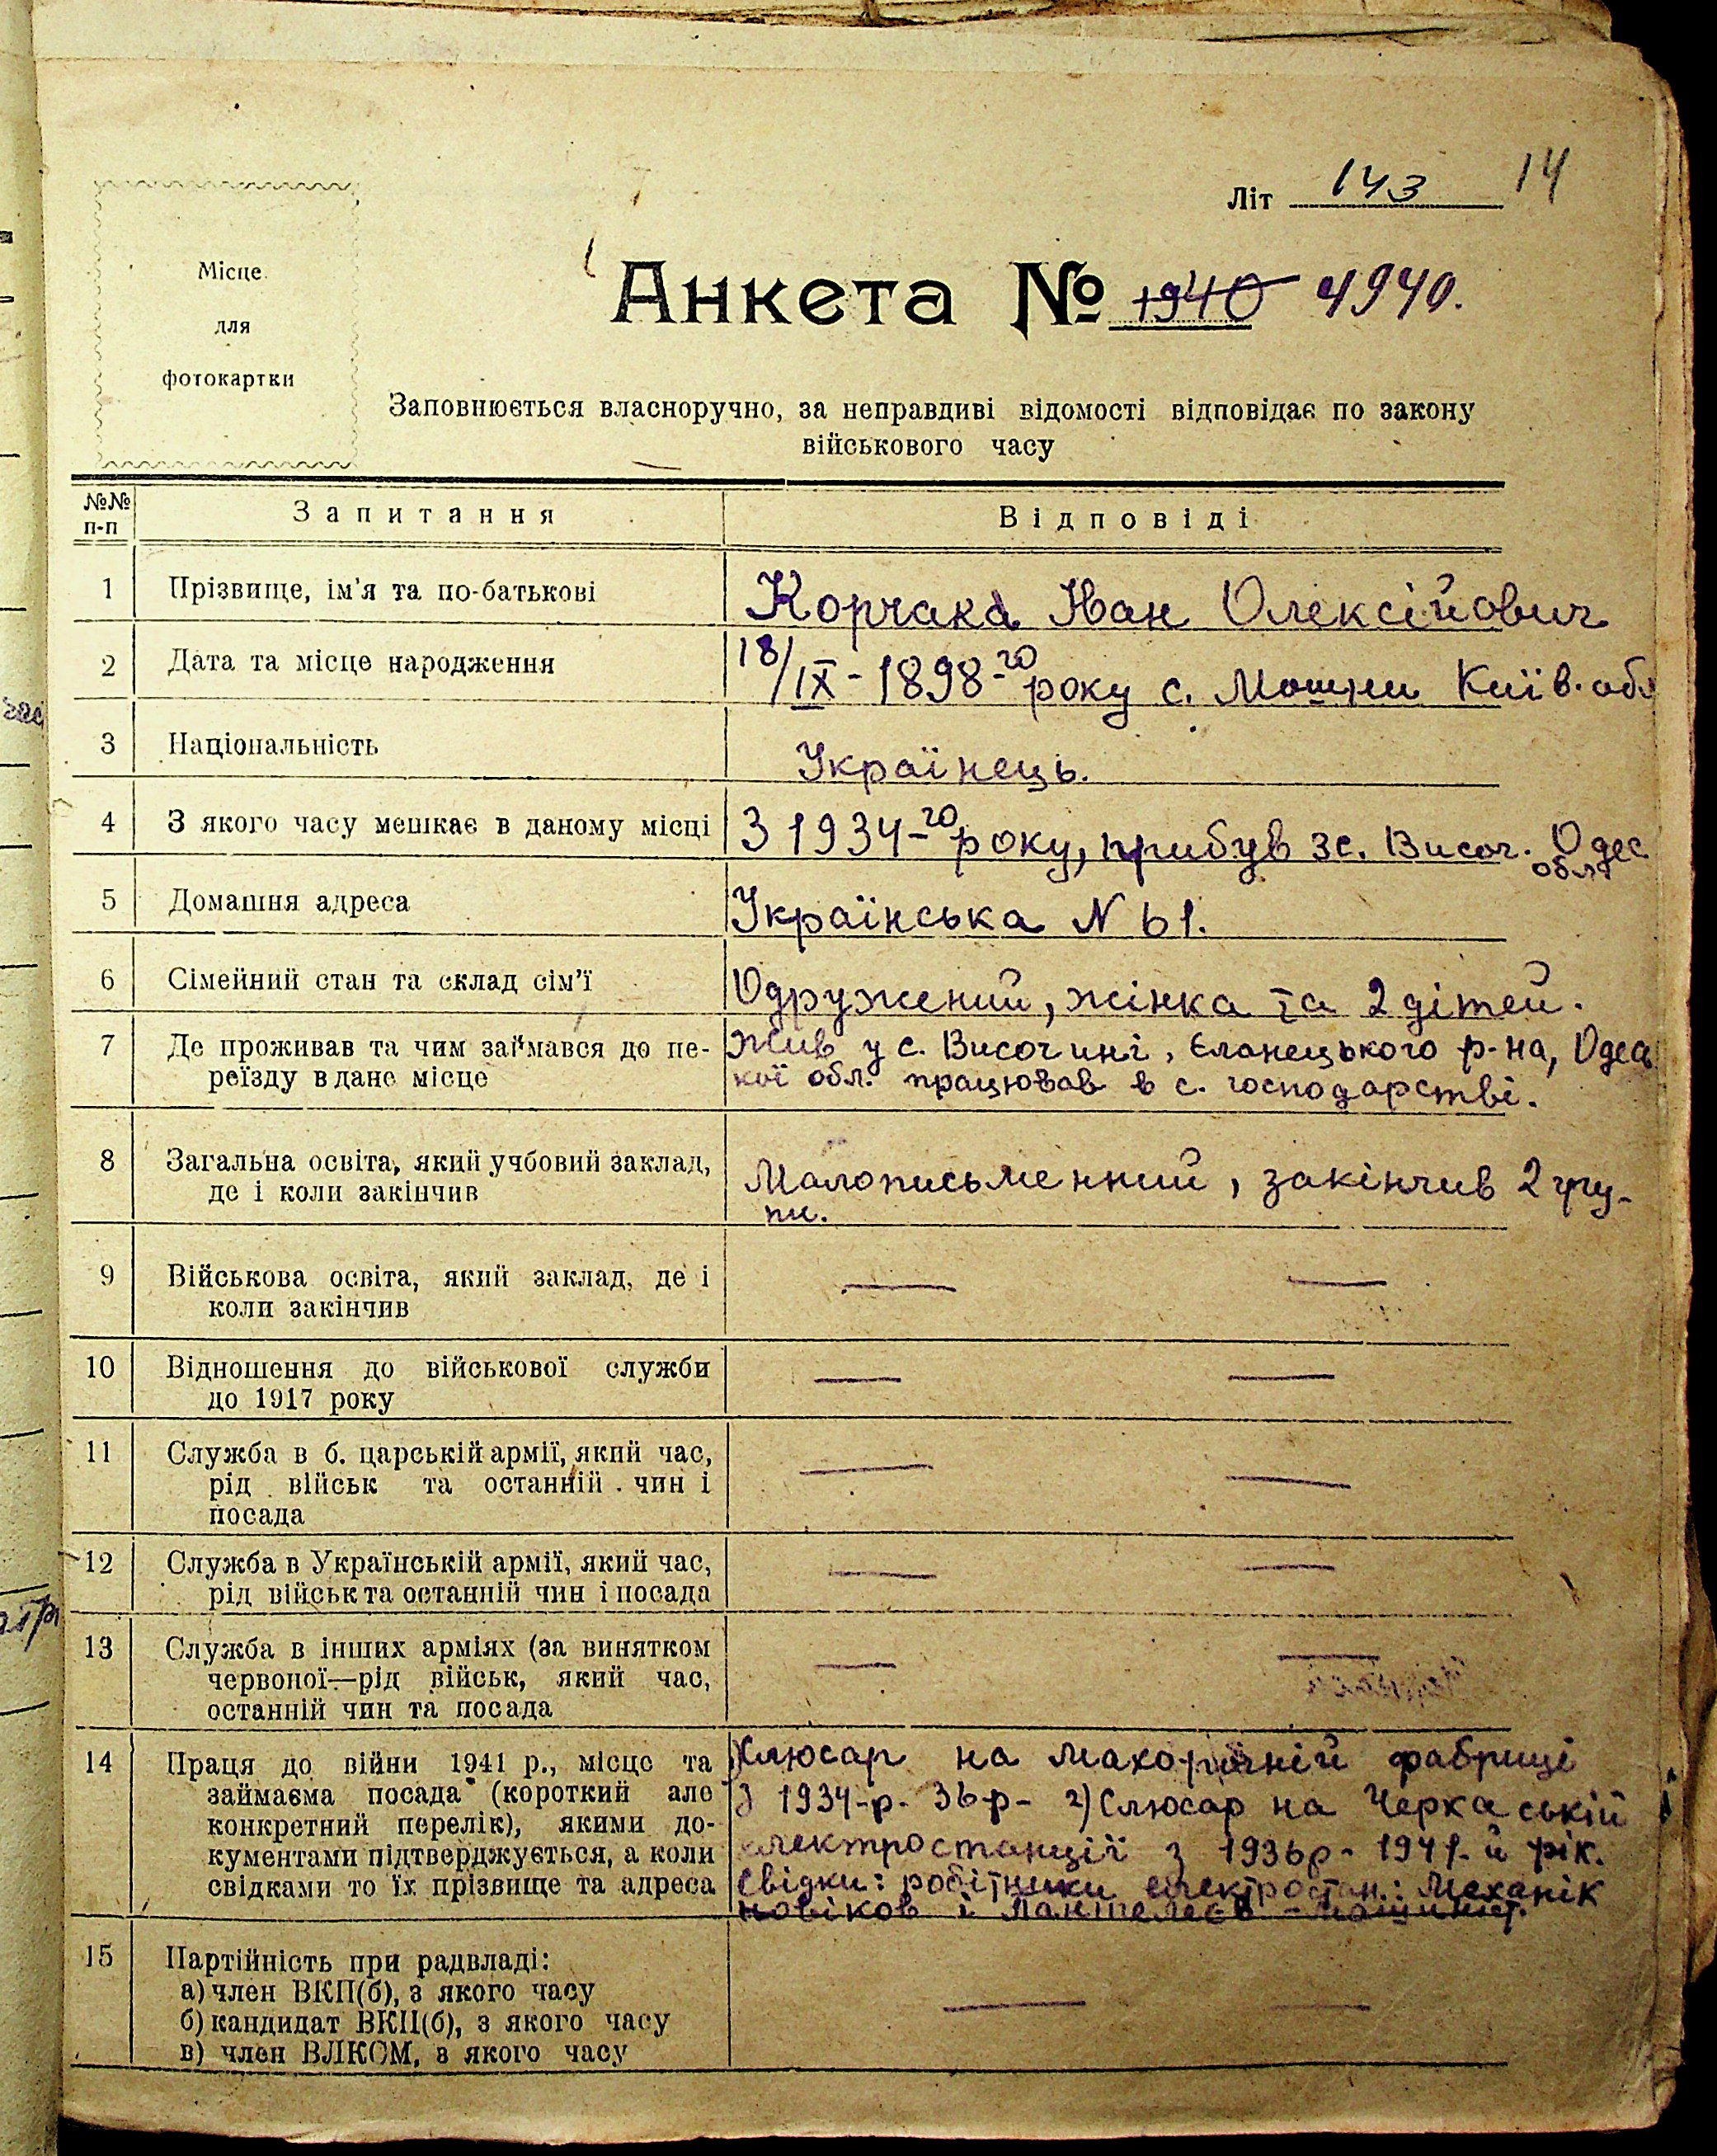 Літ 143 14
Місце
для
фотокартки
Анкета № 1940 4940.
Заповнюється власноручно, за неправдиві відомості відповідає по закону
військового часу
№№ п-п Запитання Відповіді
1 Прізвище, ім'я та по-батькові Корчака Іван Олексійович
2 Дата та місце народження 18/IX-1898-го року с. Мошни Київ. обл
3 Національність Українець.
4 З якого часу мешкає в даному місці З 1934-го року, прибув з с. Височ. Одес
обл
5 Домашня адреса Українська N 61.
6 Сімейний стан та склад сім'ї Одружений, жінка та 2 дітей.
7 Де проживав та чим займався до пе- Жив у с. Височині, Єланецького р-на, Одесь
реїзду в дане місце кої обл. працював в с. господарстві.
8 Загальна освіта, який учбовий заклад, Малописьменний, закінчив 2 гру-
де і коли закінчив пи.
9 Військова освіта, який заклад, де і
коли закінчив
10 Відношення до військової служби
до 1917 року
11 Служба в б. царській армії, який час,
рід військ та останній чин і
посада
12 Служба в Українській армії, який час,
рід військ та останній чин і посада
13 Служба в інших арміях (за винятком
червоної—рід військ, який час,
останній чин та посада
14 Праця до війни 1941 р., місце та слюсар на махорочній фабриці
займаєма посада (короткий але з 1934-р- 36р- 2) Слюсар на Черкаській
конкретний перелік), якими до- електростанції з 1936р- 1941-й рік.
кументами підтверджується, а коли Свідки: робітники електростан.: Механік
свідками то їх прізвище та адреса Новіков і Пантелеєв - машиніст.
15 Партійність при радвладі:
а) член ВКП(б), з якого часу
б) кандидат ВКП(б), з якого часу
в) член ВЛКСМ, з якого часу